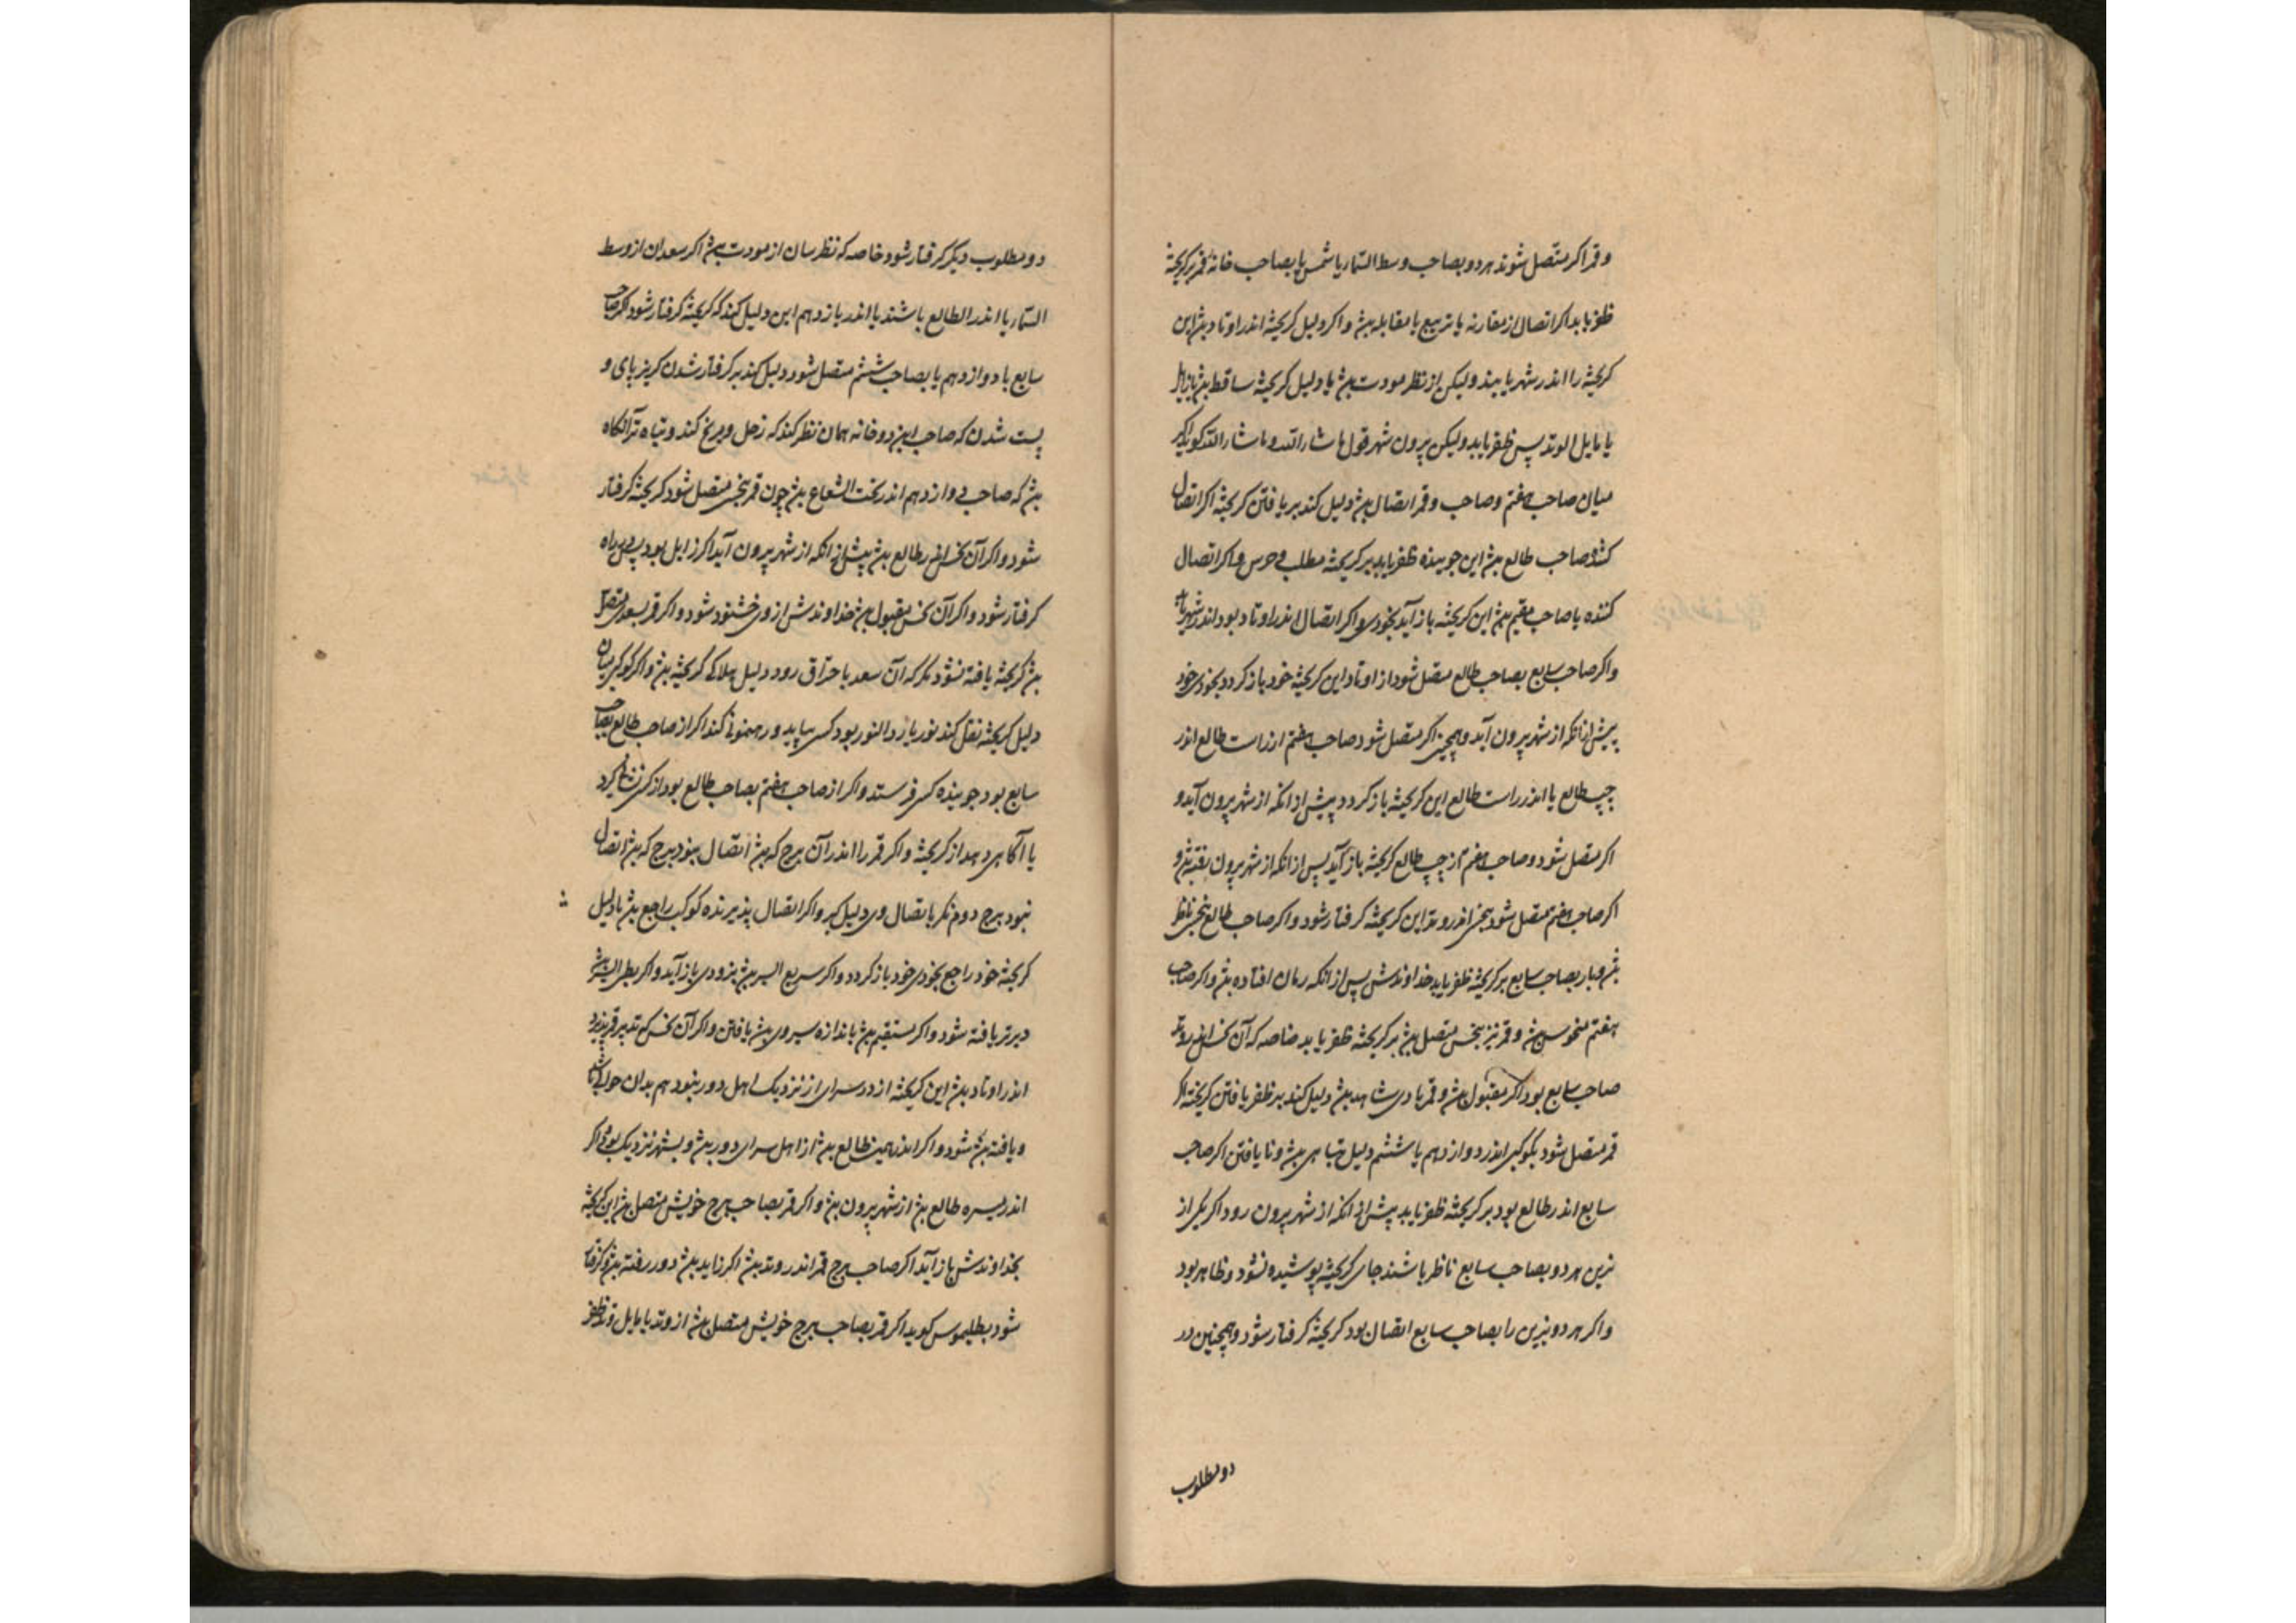 و قمر اکر متصل شوند هر دو بصاحب وسط السّمآء یا شمس یا بصاحب خانهٔ قمر بر کریخته
ظفر یابد اکر اتصال از مقارنه یا تربیع یا مقابله بود و اکر دلیل کریخته اندر اوتاد بود این
کریخته را اندر شهر یابند ولیکن از نظر مودت بود یا دلیل کریخته ساقط بود
یا مایل الوتد پس ظفر یابد ولیکن بیرون شهر قول ما شاء الله و ما شاء الله کوید اکر
میان صاحب هفتم و صاحب و قمر اتصال بود دلیل کند بر یافتن کریخته اکر اتصال
کننده صاحب طالع بود این جوینده ظفر یابد بر کریخته و اکر اتصال
کننده یا صاحب بود این کریخته باز آید بخودی و اکر اتصال اندر اوتاد بود اندر شهر
و اکر صاحب سابع بصاحب طالع متصل شود از اوتاد این کریخته خود باز کردد بخودی خود
پیش از انکه از شهر بیرون آید و همچنین اکر متصل شود صاحب هفتم از راست طالع اندر
چپ طالع یا اندر راست طالع این کریخته باز کردد پیش از انکه از شهر بیرون آید و
اکر متصل شود و صاحب هفتم از چپ طالع کریخته باز آید پس از انکه از شهر بیرون
اکر صاحب هفتم متصل شود بنحس اندر وتد این کریخته کرفتار شود و اکر صاحب طالع بنحس ناظر
بود بصاحب سابع بر کریخته ظفر یابد خداوندش پس از انکه افتاده بود و اکر صاحب
هفتم منحوس بود و قمر نیز بنحس متصل بود بر کریخته ظفر یابد خاصه که آن نحس اندر وتد
صاحب سابع بود اکر مقبول بود و قمر با وی شاهد بود دلیل کند بر ظفر یافتن کریخته اکر
قمر متصل شود بکوکبی اندر دوازدهم یا ششم دلیل تباهی بود و نا یافتن اکر صاحب
سابع اندر طالع بود بر کریخته ظفر یابد پیش از انکه از شهر بیرون رود اکر یکی از
نیرین هر دو بصاحب سابع ناظر باشند جای کریخته پوشیده نشود و ظاهر بود
و اکر هر دو نیرین را بصاحب سابع اتصال بود کریخته کرفتار شود و همچنین در
دو مطلوب
دو مطلوب دیکر کرفتار شود خاصه که نظرشان از مودت بود اکر سعدان از وسط
السّمآء یا اندر الطالع باشند یا اندر یازدهم این دلیل کند که کریخته کرفتار شود اکر صاحب
سابع با دوازدهم یا بصاحب ششم متصل شود دلیل کند بر کرفتار شدن کریزپای و
پست شدن که صاحب این دو خانه همان نظر کند که زحل و مریخ کند و تباه تر آنکاه
بود که صاحب دوازدهم اندر تحت الشعاع بود چون قمر بنحس متصل شود کریخته کرفتار
شود و اکر آن نحس اندر طالع بود پیش از انکه از شهر بیرون آید اکر زایل بود پس براه
کرفتار شود و اکر آن نحس مقبول بود خداوندش از وی خشنود شود و اکر قمر بسعدی متصل
بود کریخته یافته نشود مکر که آن سعد باحتراق رود دلیل هلاکی کریخته بود و اکر کوکبی میان
دلیل کریخته نقل کند نور یا رد النور بود کسی بیاید و رهنمونی کند اکر از صاحب طالع بصاحب
سابع بود جوینده کس فرستد و اکر از صاحب هفتم بصاحب طالع بود از کسی
یا آکاهی دهد از کریخته و اکر قمر را اندر آن برج که بود اتصال نبود برج که بود اتصال
نبود ببرج دوم نکر باتصال وی دلیل کیر و اکر اتصال پذیرنده کوکب راجع بود یا دلیل
کریخته خود راجع بخودی خود باز کردد و اکر سریع السیر بود بزودی باز آید و اکر بطی السیر
دیرتر یافته شود و اکر مستقیم بود باندازه سیر وی بود یافتن و اکر آن نحس که تدبیر قمر پذیرد
اندر اوتاد بود این کریخته از در سرای از نزدیک اهل دور نبود هم بدان
و یافته شود و اکر اندر طالع بود از اهل سرای دور بود و بشهر نزدیک بود اکر
اندر یسره طالع بود از شهر بیرون بود و اکر قمر بصاحب برج خویش متصل بود این کریخته
بخداوندش باز آید اکر صاحب برج قمر اندر وتد بود اکر زاید بود دور رفته بود و کرفتار
شود بطلیموس کوید اکر قمر بصاحب برج خویش متصل بود از وتد یا مایل وتد ظفر